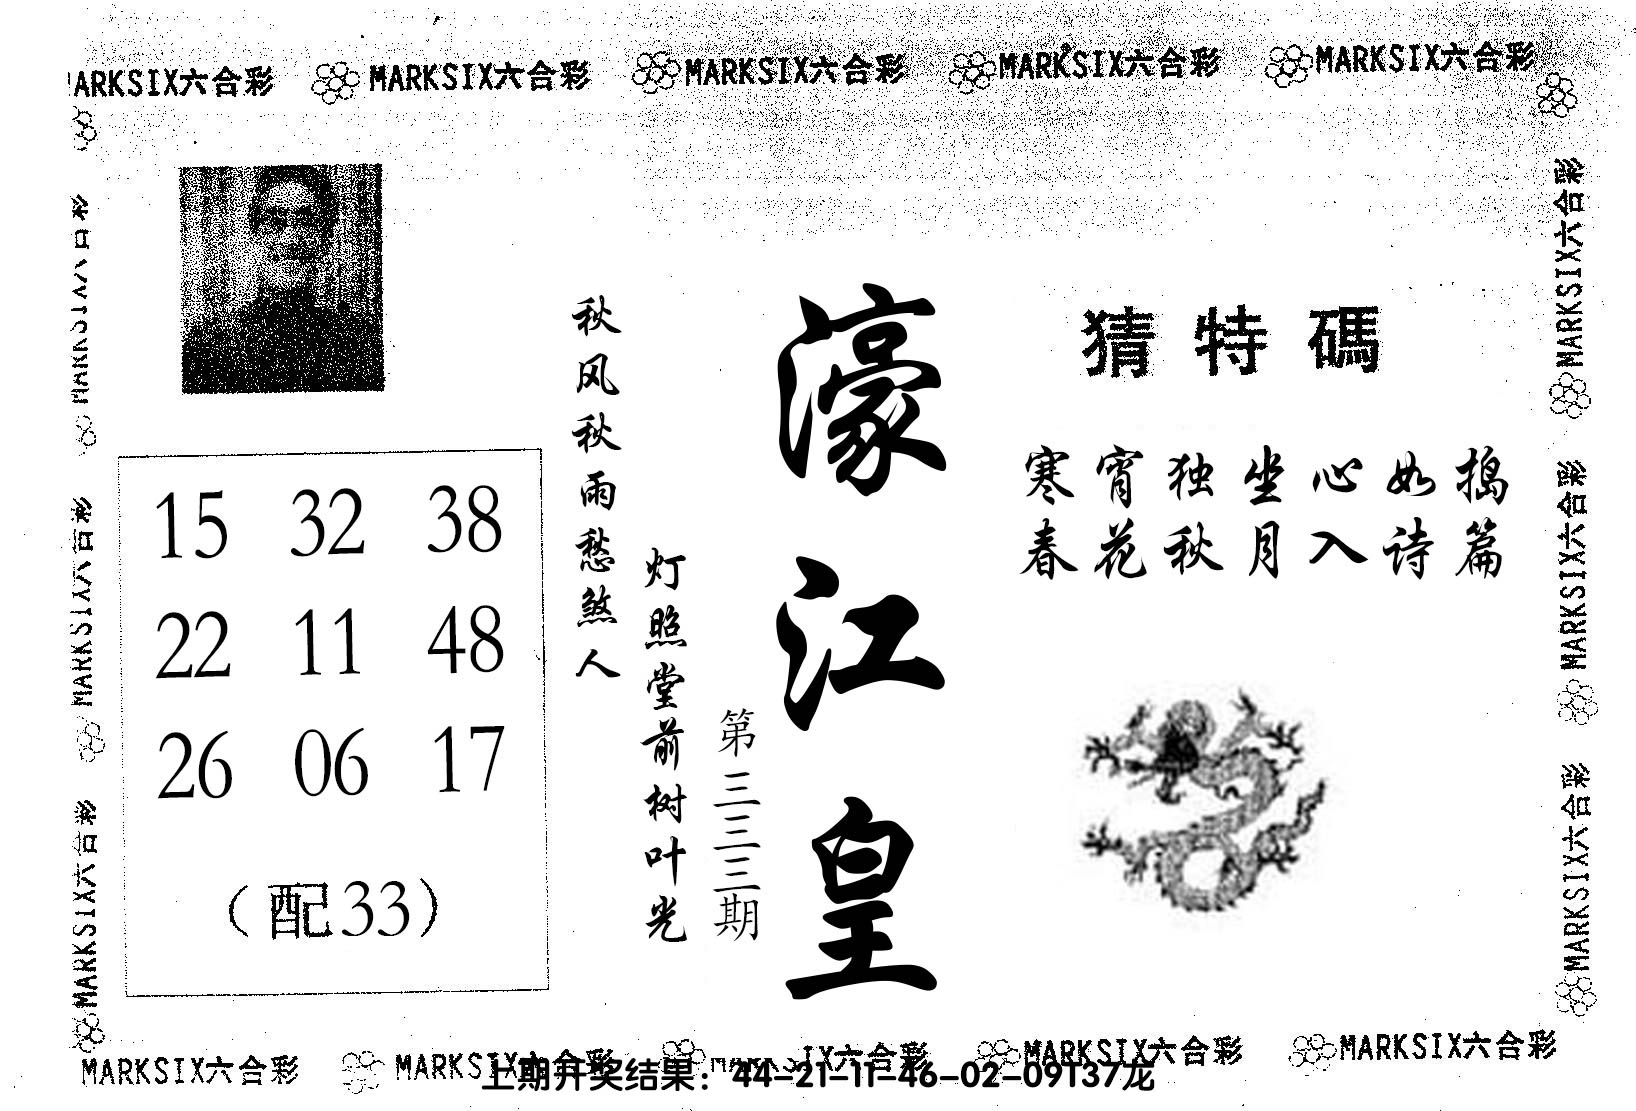 MARKSIX六合彩 MARKSIX六合彩 MARKSIX六合彩 MARKSIX六合彩 MARKSIX六合彩
猜特碼
寒宵独坐心如捣
春花秋月入诗篇
濠江皇
第三三三期
秋风秋雨愁煞人
灯照堂前树叶光
15 32 38
22 11 48
26 06 17
（配33）
MARKSIX六合彩
MARKSIX六合彩
MARKSIX六合彩
MARKSIX六合彩
MARKSIX六合彩
MARKSIX六合彩
MARKSIX六合彩 MARKSIX六合彩 MARKSIX六合彩 MARKSIX六合彩 MARKSIX六合彩
上期开奖结果：44-21-11-46-02-09T37龙